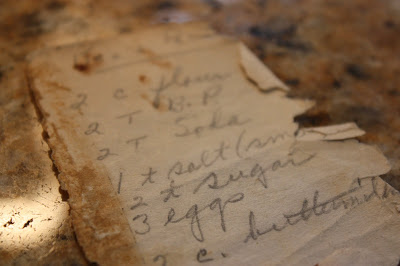 2 c flour
2 T B.P.
2 T Soda
1 t salt (sm
2 t sugar
3 eggs
2 c. buttermilk